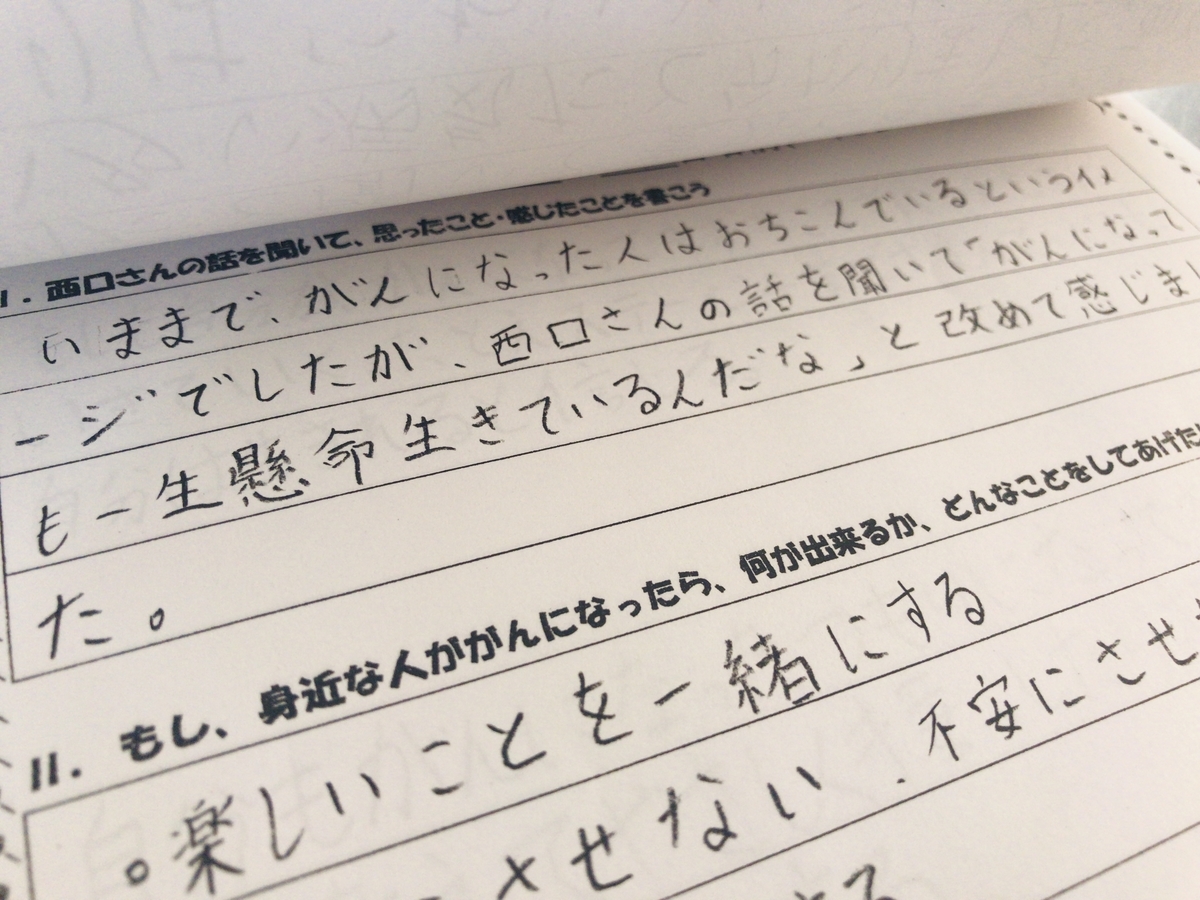 I. 西口さんの話を聞いて、思ったこと・感じたことを書こう
いままで、がんになった人はおちこんでいるというイメ
ージでしたが、西口さんの話を聞いて「がんになって
も一生懸命生きているんだな」と改めて感じまし
た。
II. もし、身近な人ががんになったら、何が出来るか、どんなことをしてあげたい
。楽しいことを一緒にする
させない
・不安にさせ
する